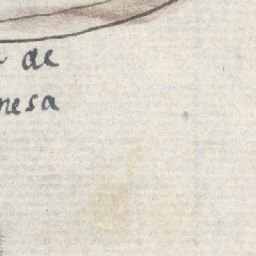 de
mesa